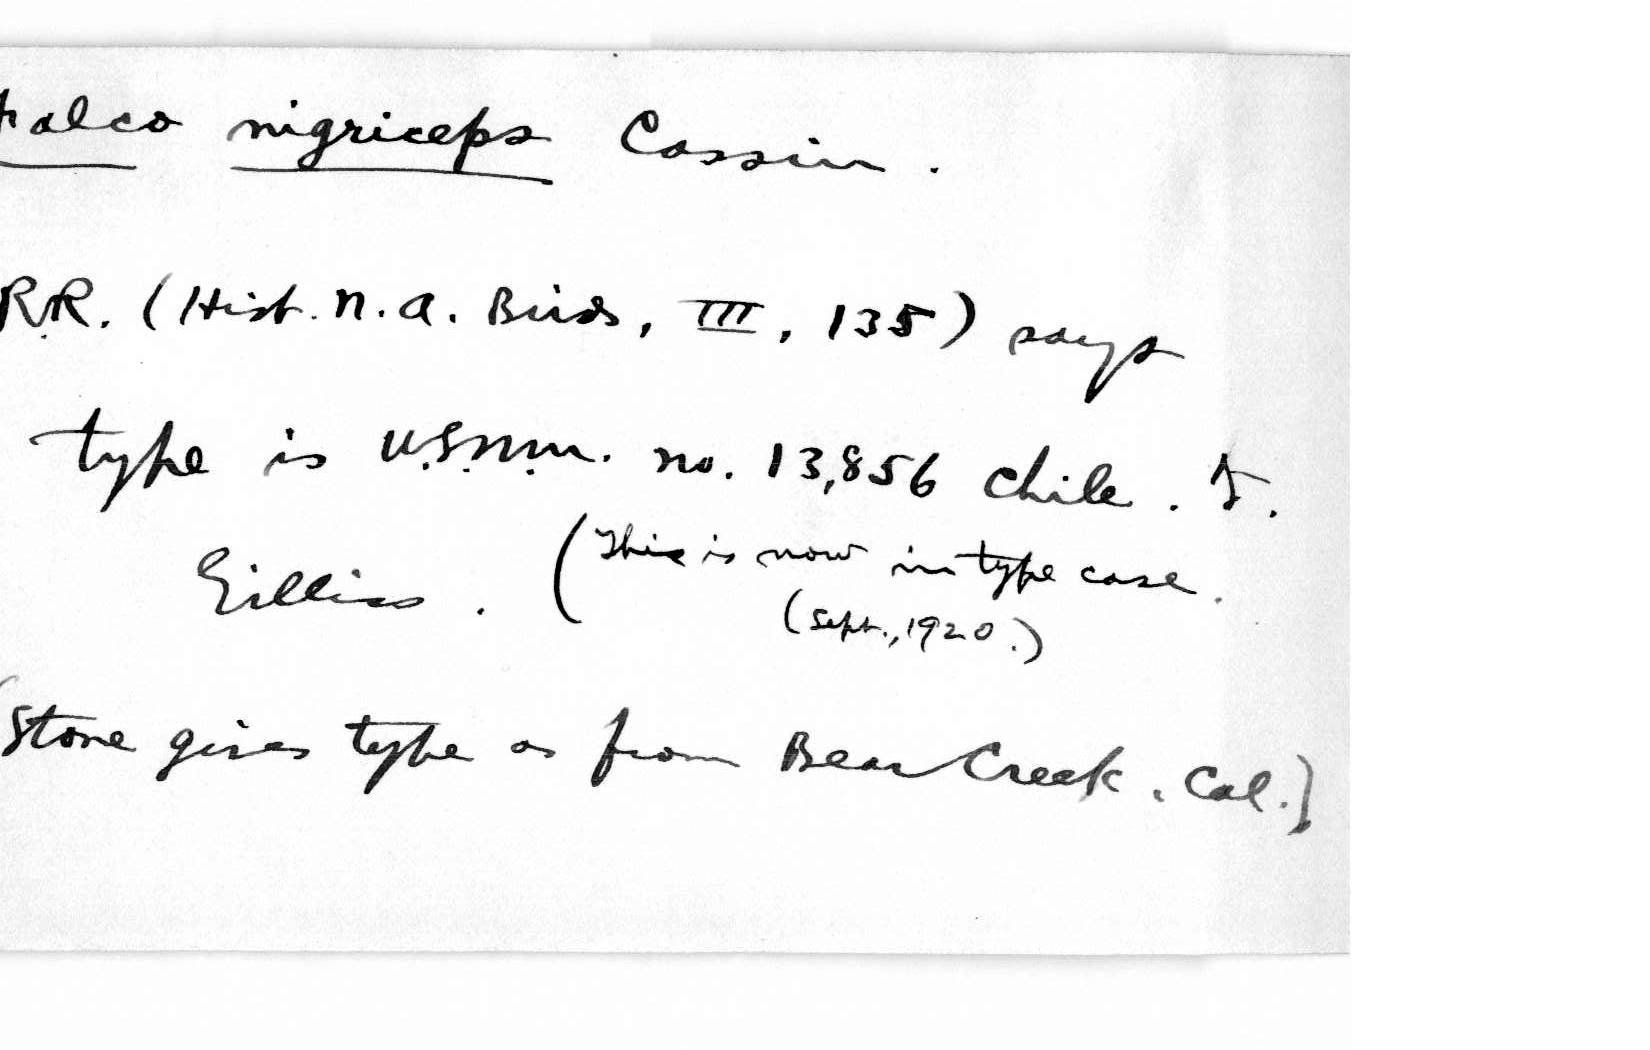 Falco nigriceps Cassin.
R.R. (Hist. N.A. Birds, III, 135) says
type is U.S.N.M. no. 13,856 Chile. J.
Gilliss. (This is now in type case.
(Sept., 1920.)
[Stone gives type as from Bear Creek, Cal.]